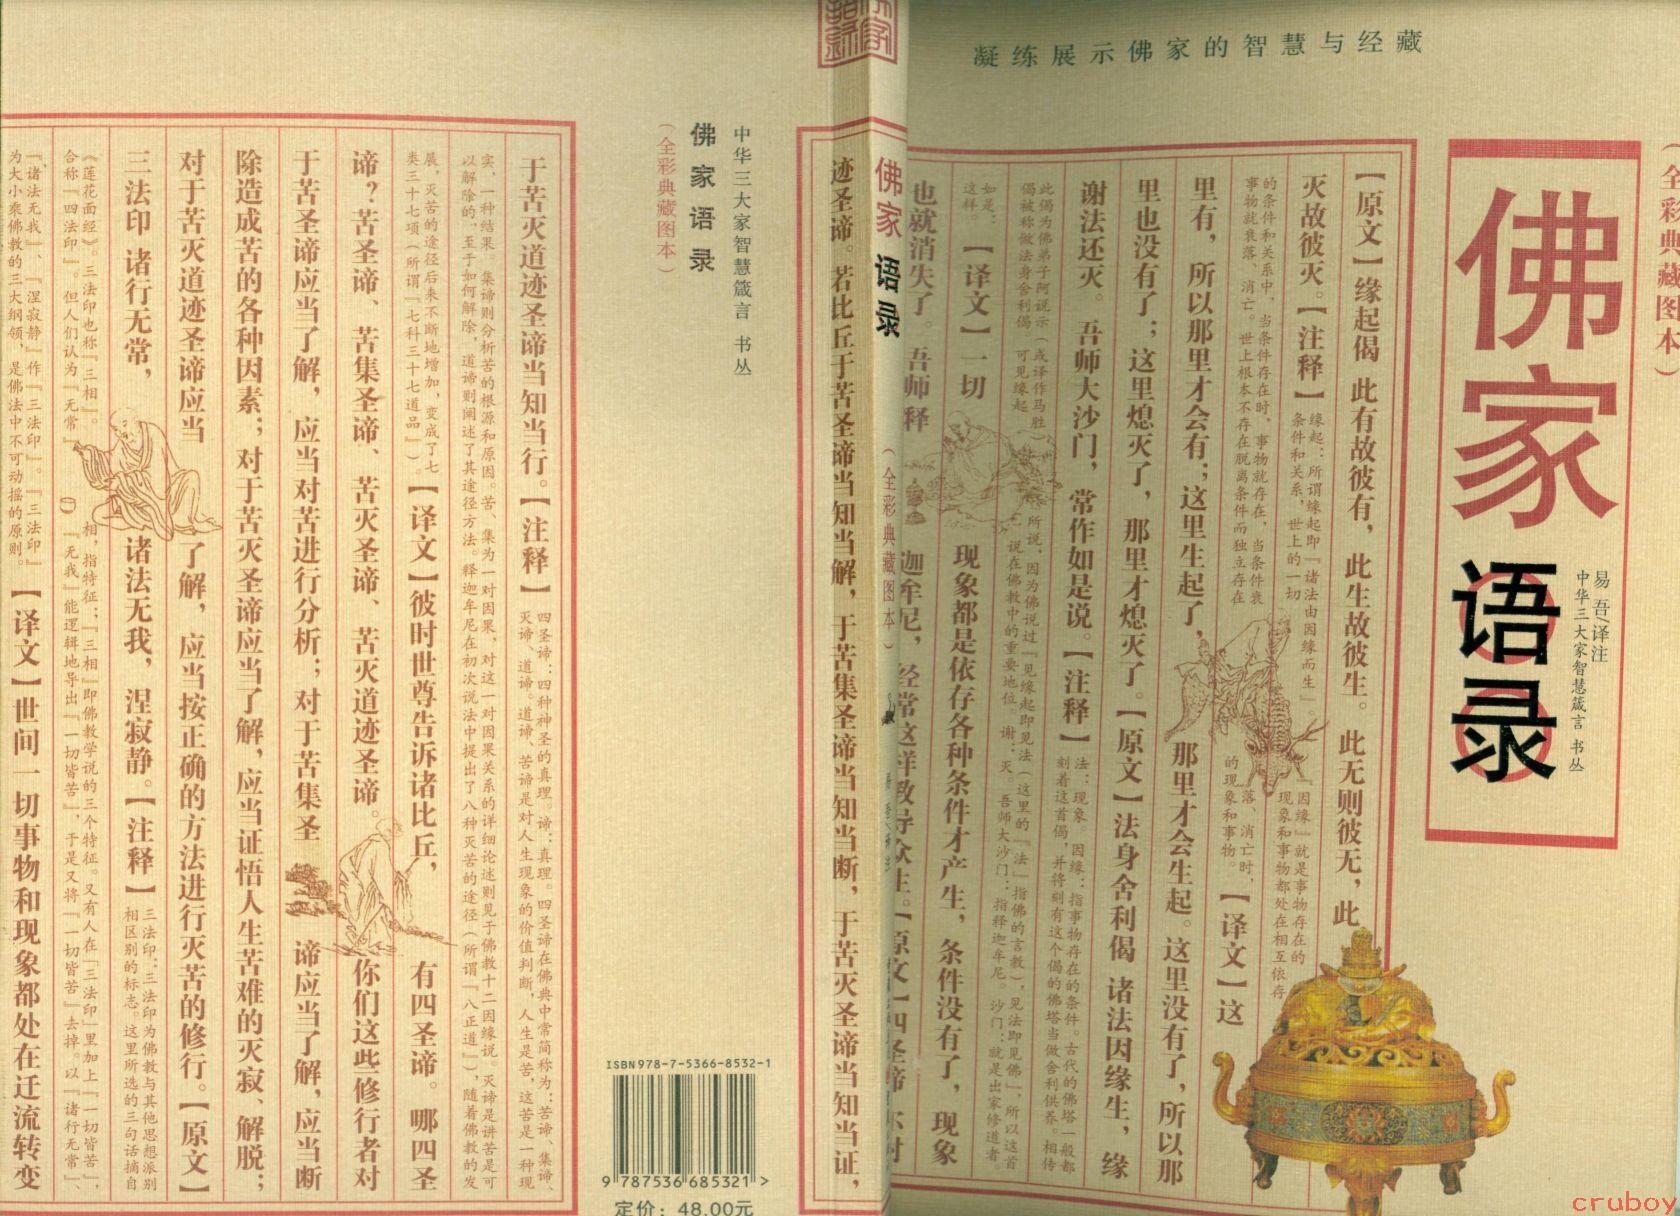 凝练展示佛家的智慧与经藏
(全彩典藏图本)
佛家
语录
易吾/译注
中华三大家智慧箴言 书丛
【原文】缘起偈 此有故彼有，此生故彼生。此无则彼无，此
灭故彼灭。【注释】
缘起：所谓缘起即『诸法由因缘而生』。
条件和关系，世上的一切
『因缘』就是事物存在的
现象和事物都处在相互依存
的条件和关系中，当条件存在时，事物就存在，当条件衰
事物就衰落、消亡，世上根本不存在脱离条件而独立存在
落、消亡时，
的现象和事物。
【译文】这
里有，所以那里才会有；这里生起了，那里才会生起。这里没有了，所以那
里也没有了；这里熄灭了，那里才熄灭了。【原文】法身舍利偈 诸法因缘生，缘
谢法还灭。吾师大沙门，常作如是说。【注释】
法：现象。因缘：指事物存在的条件。古代的佛塔一般都
刻着这首偈，并将刻有这个偈的佛塔当做舍利供养。相传
此偈为佛弟子阿说示（或译作马胜）
偈被称做法身舍利偈。可见缘起
所说，因为佛说过『见缘起即见法（这里的『法』指佛的言教），见法即见佛』，所以这首
说在佛教中的重要地位。谢：灭。吾师大沙门：指释迦牟尼。沙门：就是出家修道者。
如是：
这样。
【译文】一切
现象都是依存各种条件才产生，条件没有了，现象
也就消失了。吾师释
迦牟尼，经常这样教导众生。【原文】四圣谛 尔时
佛家 语录
(全彩典藏图本)
迹圣谛。若比丘于苦圣谛当知当解，于苦集圣谛当知当断，于苦灭圣谛当知当证，
中华三大家智慧箴言 书丛
佛家语录
(全彩典藏图本)
于苦灭道迹圣谛当知当行。【注释】
四圣谛：四种神圣的真理。谛：真理。四圣谛在佛典中常简称为：苦谛、集谛、
灭谛、道谛。苦谛是对人生现象的价值判断，人生是苦，这苦是一种现
实，一种结果。集谛则分析苦的根源和原因。苦、集为一对因果，对这一对因果关系的详细论述则见于佛教十二因缘说。灭谛是讲苦是可
以解除的，至于如何解除，道谛则阐述了其途径方法。释迦牟尼在初次说法中提出了八种灭苦的途径（所谓『八正道』），随着佛教的发
展，灭苦的途径后来不断地增加，变成了七
类三十七项（所谓『七科三十七道品』）。
【译文】彼时世尊告诉诸比丘，有四圣谛。哪四圣
谛？苦圣谛、苦集圣谛、苦灭圣谛、苦灭道迹圣谛。你们这些修行者对
于苦圣谛应当了解，应当对苦进行分析；对于苦集圣谛应当了解，应当断
除造成苦的各种因素；对于苦灭圣谛应当了解，应当证悟人生苦难的灭寂、解脱；
对于苦灭道迹圣谛应当了解，应当按正确的方法进行灭苦的修行。【原文】
三法印 诸行无常，诸法无我，涅寂静。【注释】
三法印：三法印为佛教与其他思想派别
相区别的标志。这里所选的三句话摘自
《莲花面经》。三法印也称『三相』。
相，指特征；『三相』即佛教学说的三个特征。又有人在『三法印』里加上『一切皆苦』，
合称『四法印』。但人们认为『无常』
『无我』能逻辑地导出『一切皆苦』，于是又将『一切皆苦』去掉。以『诸行无常』、
『诸法无我』、『涅寂静』作『三法印』。『三法印』
为大小乘佛教的三大纲领，是佛法中不可动摇的原则。
【译文】世间一切事物和现象都处在迁流转变
ISBN978-7-5366-8532-1
9 787536 685321 >
定价：48.00元
cruboy